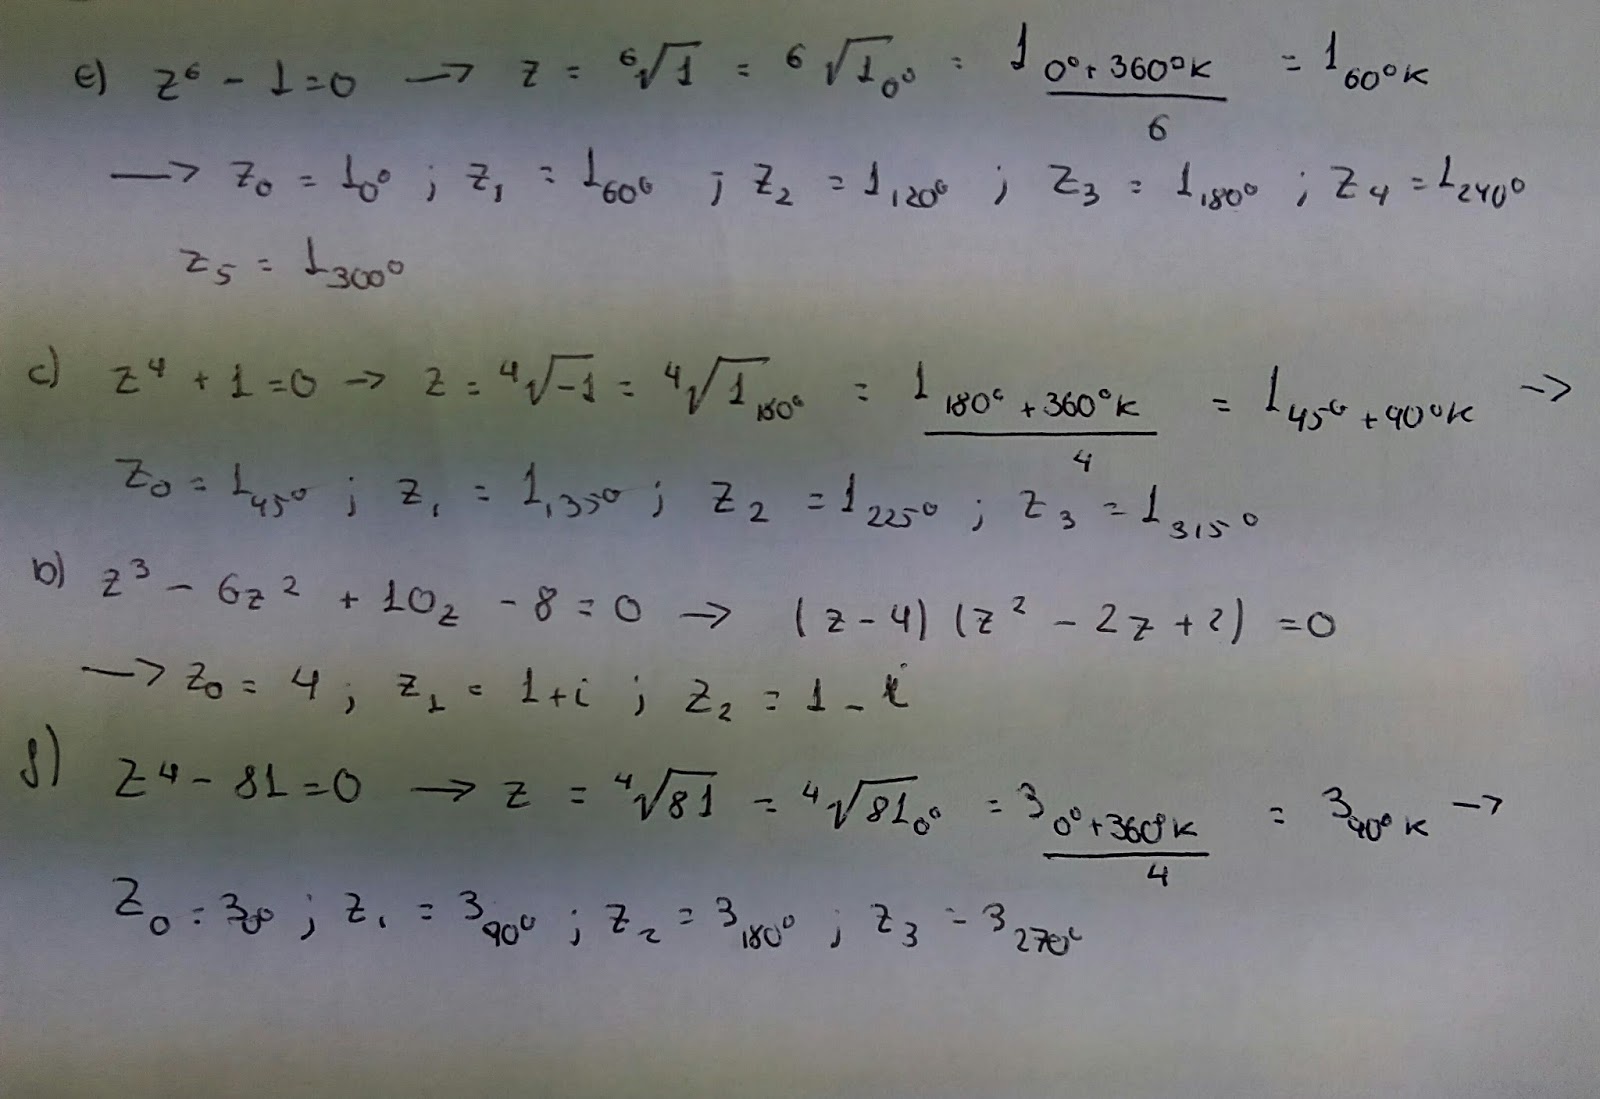 e) z⁶ - 1 = 0 → z = ⁶√1 = ⁶√1₀° = 1_(0° + 360°K)/6 = 1_60°K
→ z₀ = 1_0° ; z₁ = 1_60° ; z₂ = 1_120° ; z₃ = 1_180° ; z₄ = 1_240°
z₅ = 1_300°
c) z⁴ + 1 = 0 → z = ⁴√-1 = ⁴√1_180° = 1_(180° + 360°K)/4 = 1_45° + 90°K →
z₀ = 1_45° ; z₁ = 1_135° ; z₂ = 1_225° ; z₃ = 1_315°
b) z³ - 6z² + 10z - 8 = 0 → (z - 4) (z² - 2z + 2) = 0
→ z₀ = 4 ; z₁ = 1 + i ; z₂ = 1 - i
f) z⁴ - 81 = 0 → z = ⁴√81 = ⁴√81_0° = 3_(0° + 360°K)/4 = 3_90°K →
z₀ = 3_0° ; z₁ = 3_90° ; z₂ = 3_180° ; z₃ = 3_270°